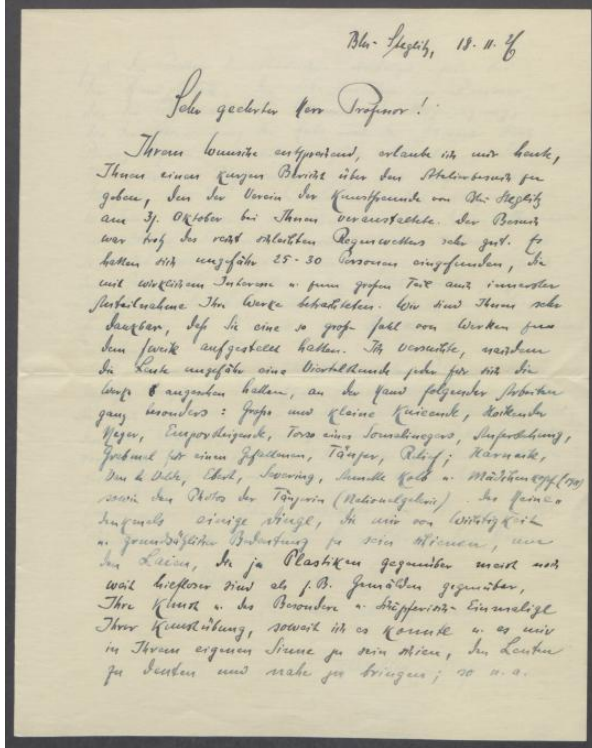 Bln-Steglitz, 18.11.26
Sehr geehrter Herr Professor!
Ihrem Wunsche entsprechend, erlaube ich mir heute,
Ihnen einen kurzen Bericht über den Atelierbesuch zu
geben, den der Verein der Kunstfreunde von Bln-Steglitz
am 31. Oktober bei Ihnen veranstaltete. Der Besuch
war trotz des recht schlechten Regenwetters sehr gut. Es
hatten sich ungefähr 25-30 Personen eingefunden, die
mit wirklichem Interesse u. zum großen Teil auch innerster
Anteilnahme Ihre Werke betrachteten. Wir sind Ihnen sehr
dankbar, daß Sie eine so große Zahl von Werken zu
dem Zweck aufgestellt hatten. Ich versuchte, nachdem
die Leute ungefähr eine Viertelstunde jeder für sich die
Werke angesehen hatten, an der Hand folgender Arbeiten
ganz besonders: Große und kleine Knieende, Hockender
Neger, Emporsteigende, Torso eines Somalinegers, Auferstehung,
Grabmal für einen Gefallenen, Tänzer, Relief; Harnack,
Van de Velde, Ebert, Severing, Annette Kolb u. Mädchenkopf
sowie den Photos der Tänzerin (Nationalgalerie) des Heine-
denkmals einige Dinge, die mir von Wichtigkeit
u. grundsätzlicher Bedeutung zu sein schienen, um
den Laien, die ja Plastiken gegenüber meist noch
weit hilfloser sind als z.B. Gemälden gegenüber,
Ihre Kunst u. das Besondere u. schöpferisch-Einmalige
Ihrer Kunstübung, soweit ich es konnte u. es mir
in Ihrem eigenen Sinne zu sein schien, den Leuten
zu deuten und nahe zu bringen; so u.a.